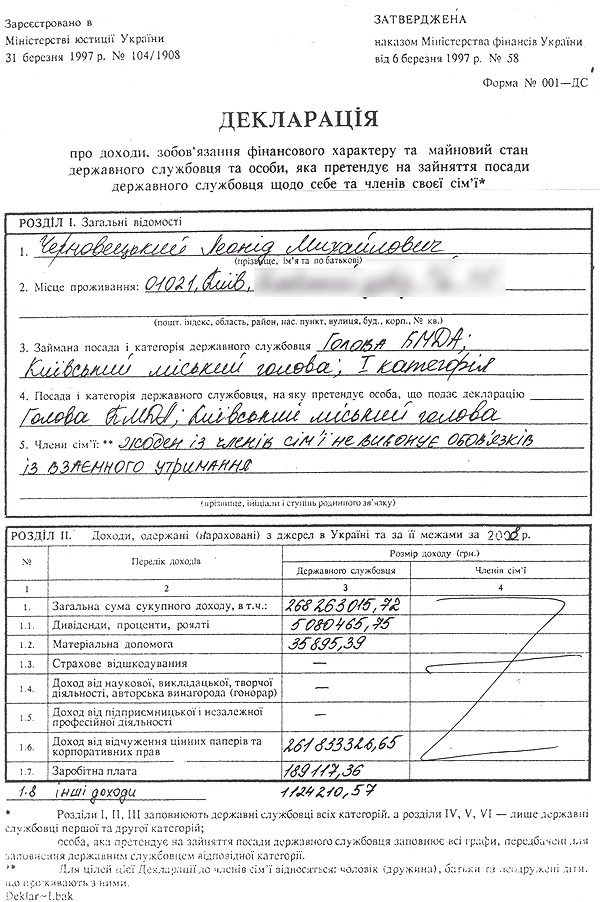 Зареєстровано в
Міністерстві юстиції України
31 березня 1997 р. № 104/1908
ЗАТВЕРДЖЕНА
наказом Міністерства фінансів України
від 6 березня 1997 р. № 58
Форма № 001—ДС
ДЕКЛАРАЦІЯ
про доходи, зобов'язання фінансового характеру та майновий стан
державного службовця та особи, яка претендує на зайняття посади
державного службовця щодо себе та членів своєї сім'ї*
РОЗДІЛ I. Загальні відомості
1. Черновецький Леонід Михайлович
(прізвище, ім'я та по батькові)
2. Місце проживання: 01021, Київ,
(пошт. індекс, область, район, нас. пункт, вулиця, буд., корп., № кв.)
3. Займана посада і категорія державного службовця Голова КМДА;
Київський міський голова; I категорія
4. Посада і категорія державного службовця, на яку претендує особа, що подає декларацію
Голова КМДА; Київський міський голова
5. Члени сім'ї: ** Жоден із членів сім'ї не виконує обов'язків
із взаємного утримання
(прізвище, ініціали і ступінь родинного зв'язку)
РОЗДІЛ II. Доходи, одержані (нараховані) з джерел в Україні та за її межами за 2008 р.
№ Перелік доходів Розмір доходу (грн.)
Державного службовця Членів сім'ї
1 2 3 4
1. Загальна сума сукупного доходу, в т.ч.: 268263015,72
1.1. Дивіденди, проценти, роялті 5080465,75
1.2. Матеріальна допомога 35895,39
1.3. Страхове відшкодування —
1.4. Доход від наукової, викладацької, творчої
діяльності, авторська винагорода (гонорар) —
1.5. Доход від підприємницької і незалежної
професійної діяльності —
1.6. Доход від відчуження цінних паперів та
корпоративних прав 261833326,65
1.7. Заробітна плата 189117,36
1.8 інші доходи 1124210,57
* Розділи I, II, III заповнюють державні службовці всіх категорій, а розділи IV, V, VI — лише державні
службовці першої та другої категорій;
особа, яка претендує на зайняття посади державного службовця заповнює всі графи, передбачені для
заповнення державним службовцем відповідної категорії.
** Для цілей цієї Декларації до членів сім'ї відносяться: чоловік (дружина), батьки та неодружені діти,
що проживають з ними.
Deklar~1.bak